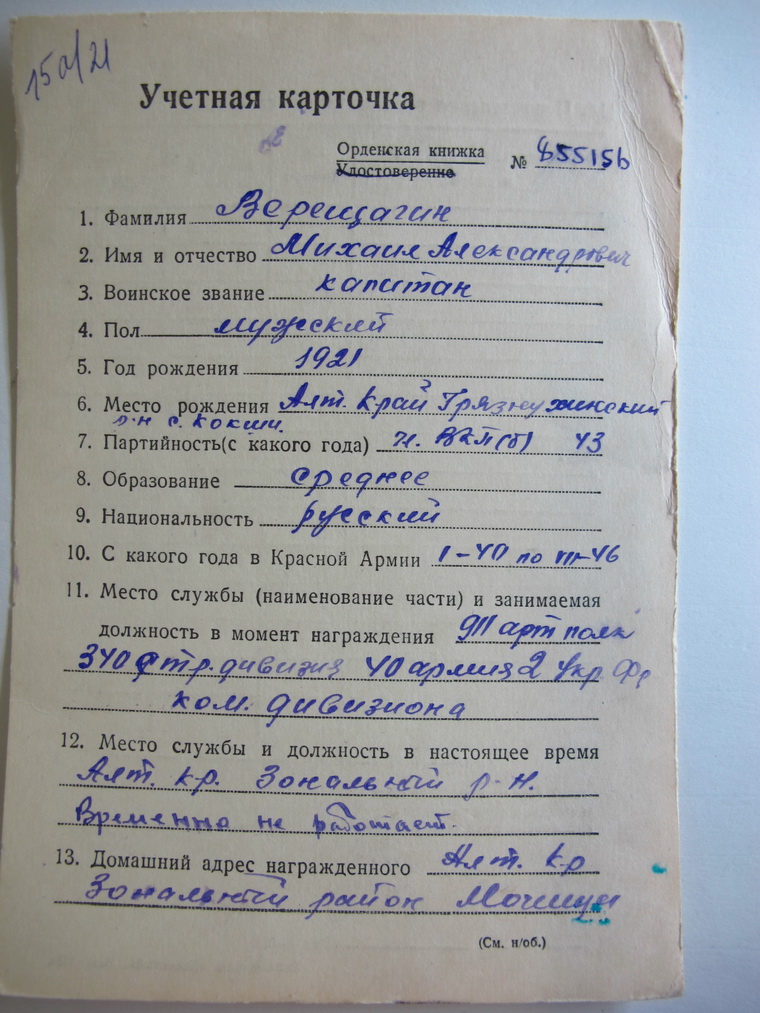 150/21
Учетная карточка
Орденская книжка
Удостоверение
№ 855156
1. Фамилия Верещагин
2. Имя и отчество Михаил Александрович
3. Воинское звание капитан
4. Пол мужский
5. Год рождения 1921
6. Место рождения Алт. Край Грязнухинский
р-н с. Кокши.
7. Партийность(с какого года) ч. ВКП(б) 43
8. Образование среднее
9. Национальность русский
10. С какого года в Красной Армии I-40 по VII-46
11. Место службы (наименование части) и занимаемая
должность в момент награждения 911 арт полк
340 Стр. дивизия 40 армия 2 Укр Фр
ком. дивизиона
12. Место службы и должность в настоящее время
Алт. кр. Зональный р-н.
Временно не работает.
13. Домашний адрес награжденного Алт. кр
Зональный район
(См. н/об.)